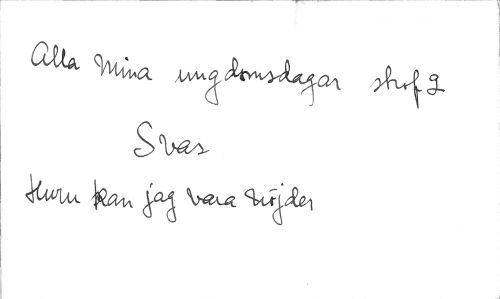 Alla mina ungdomsdagar strof 2
Svar
Huru kan jag vara nöjder